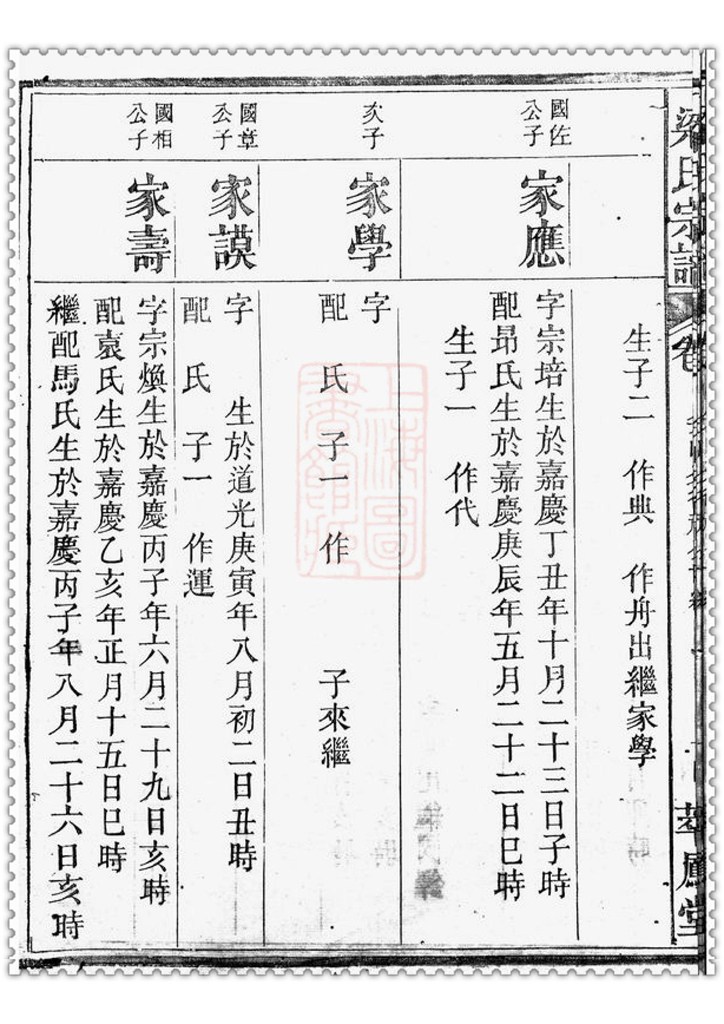 梁氏宗譜
卷
萃鳳堂
生子二 作典 作舟出繼家學
國佐
公子
家應
字宗培生於嘉慶丁丑年十月二十三日子時
配昻氏生於嘉慶庚辰年五月二十二日巳時
生子一 作代
次子
家學
字
配 氏 子一 作 子來繼
國章
公子
家謨
字 生於道光庚寅年八月初二日丑時
配 氏 子一 作運
國相
公子
家壽
字宗煥生於嘉慶丙子年六月二十九日亥時
配袁氏生於嘉慶乙亥年正月十五日巳時
繼配馬氏生於嘉慶丙子年八月二十六日亥時
上海圖
書館藏